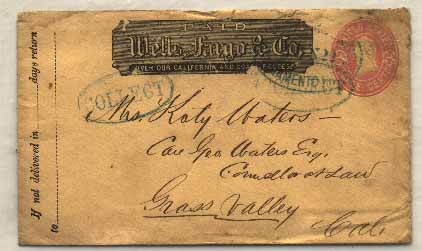 PAID
Wells, Fargo & Co.
OVER OUR CALIFORNIA AND COAST ROUTES
COLLECT
Mrs Katy Waters –
Care Geo. Waters Esq.
Councellor at Law
Grass Valley
Cal.
If not delivered in days return
to